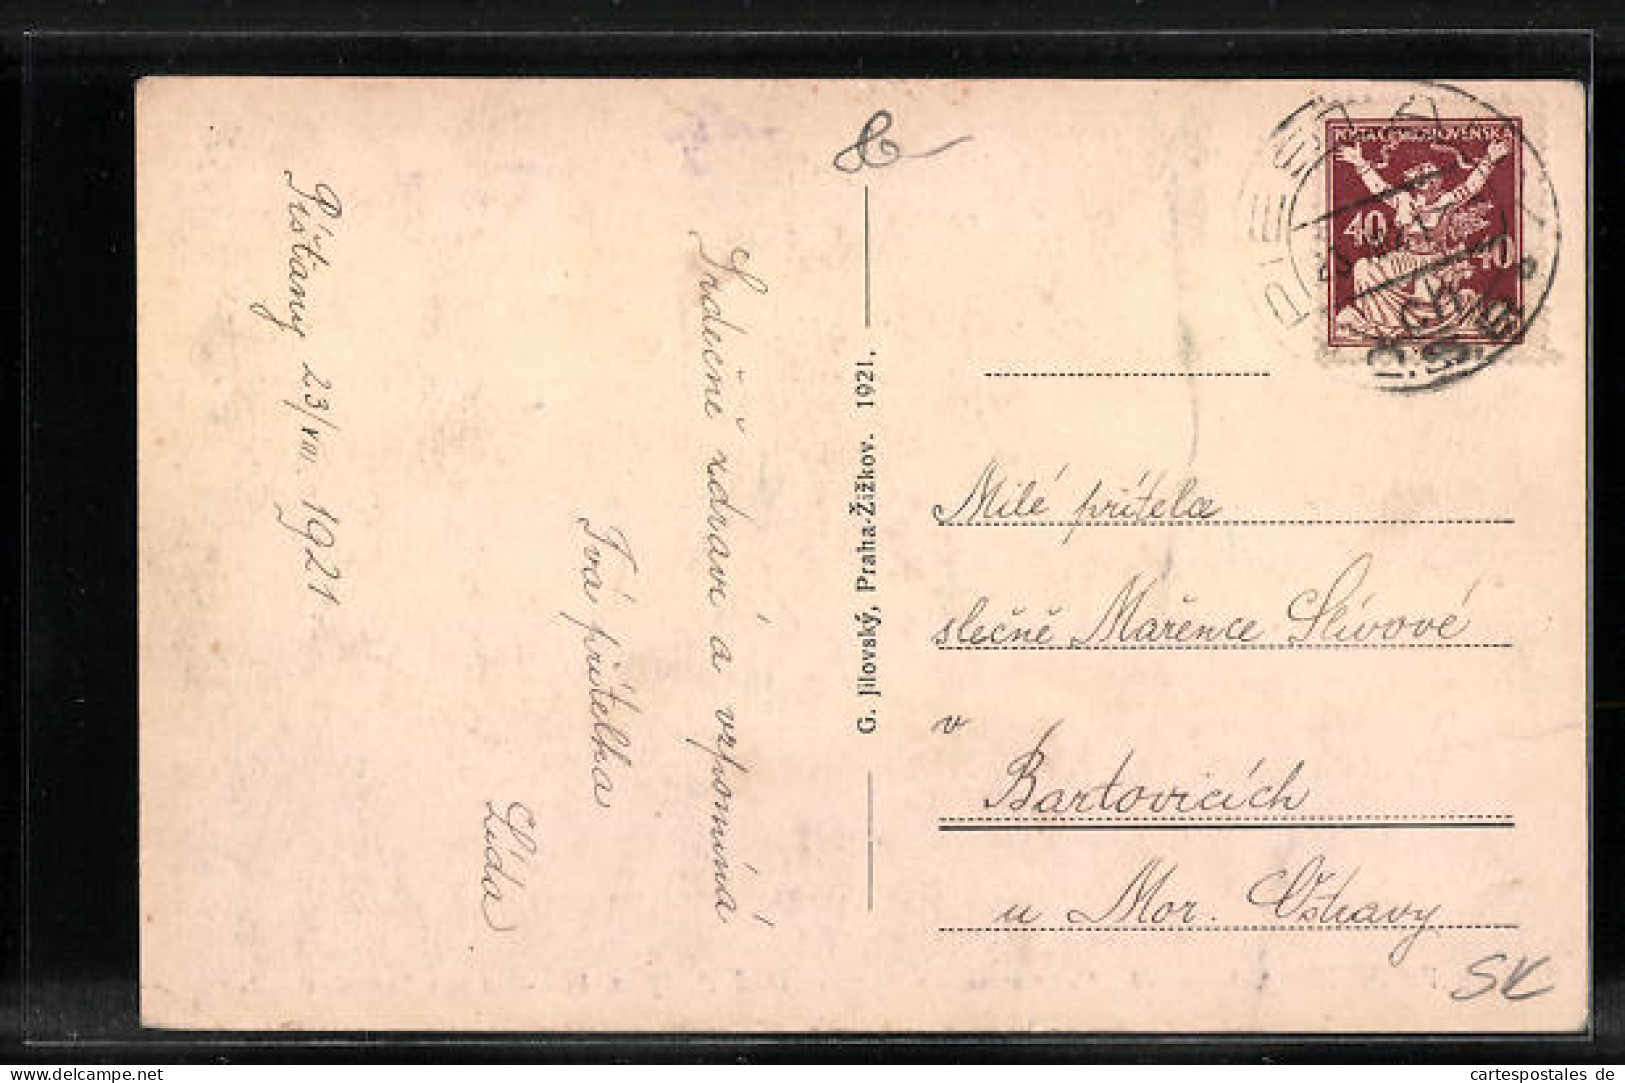 Píšťany 23/VIII. 1921.
Srdečně zdraví a vzpomíná
Tvá přítelka
Lída.
G. Jilovský, Praha-Žižkov. 1921.
POŠTA ČESKOSLOVENSKÁ
40 40
PIEŠŤ
Č.S.
Milé přítelce
slečně Mařence Slívové
v
Bartovicích
u Mor. Ostravy
SK
cartespostales de
www.delcampe.net